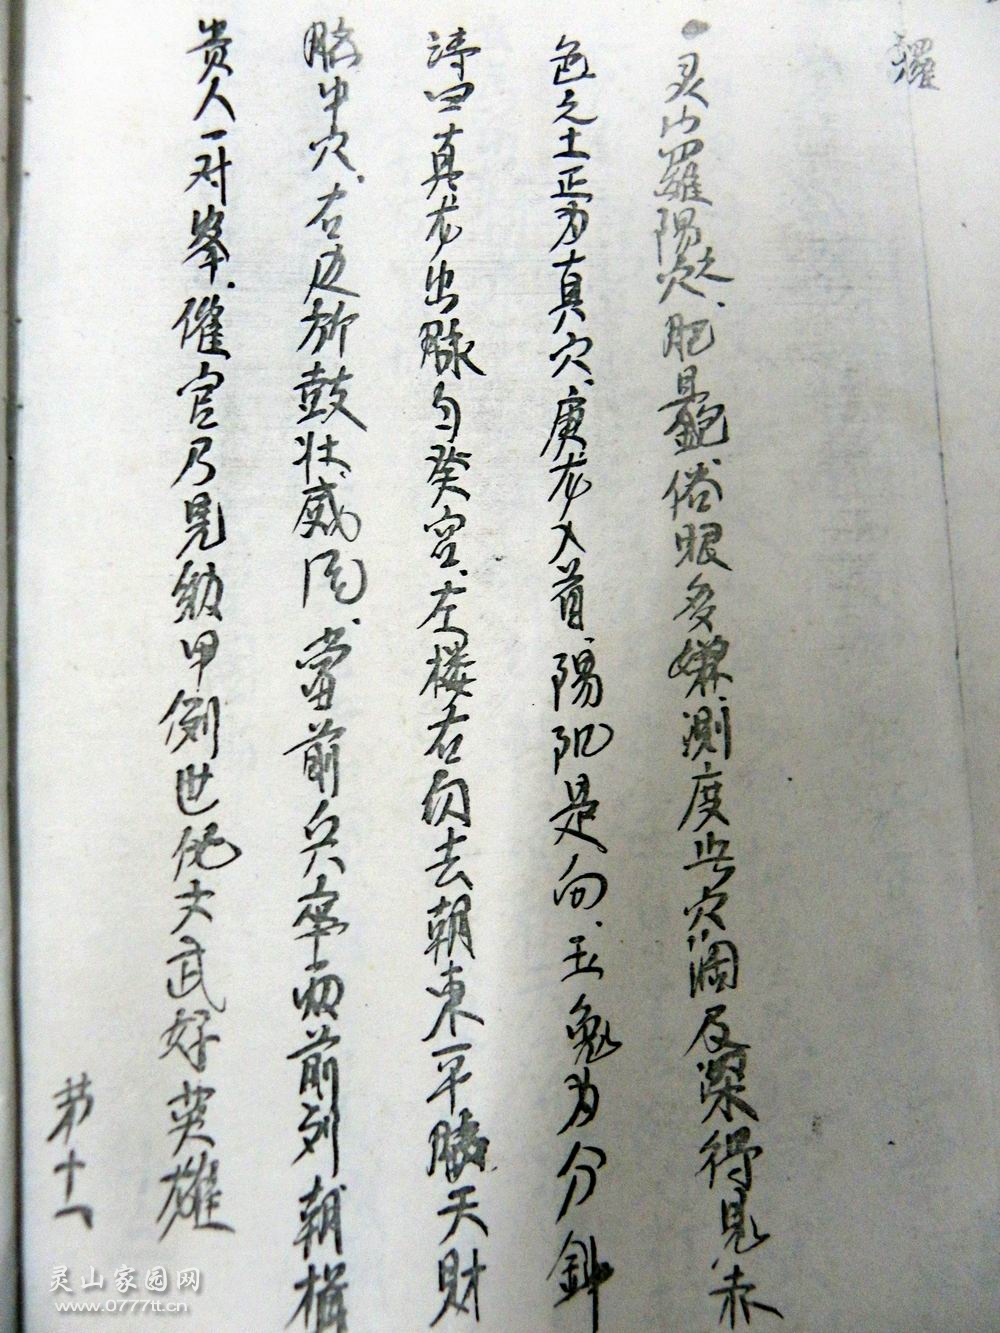 灵山羅陽处、肥 俗眼多嫌、測度此穴濶及深得見赤
色之土正为真穴、庚龙入首陽 是向、玉兔为分針
詩曰真龙出脉勾癸宫、左楼右 去朝東一平腦天財
腦中穴、右边旂鼓壮威 、當前兵卒 前列朝揖
贵人一对峯、催官乃是 甲例世他文武好英雄
第十一
灵山家园网
www.0777tt.cn